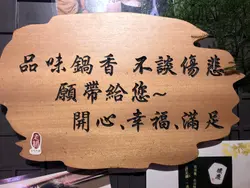 品味鍋香 不談傷悲
願帶給您~
開心、幸福、滿足